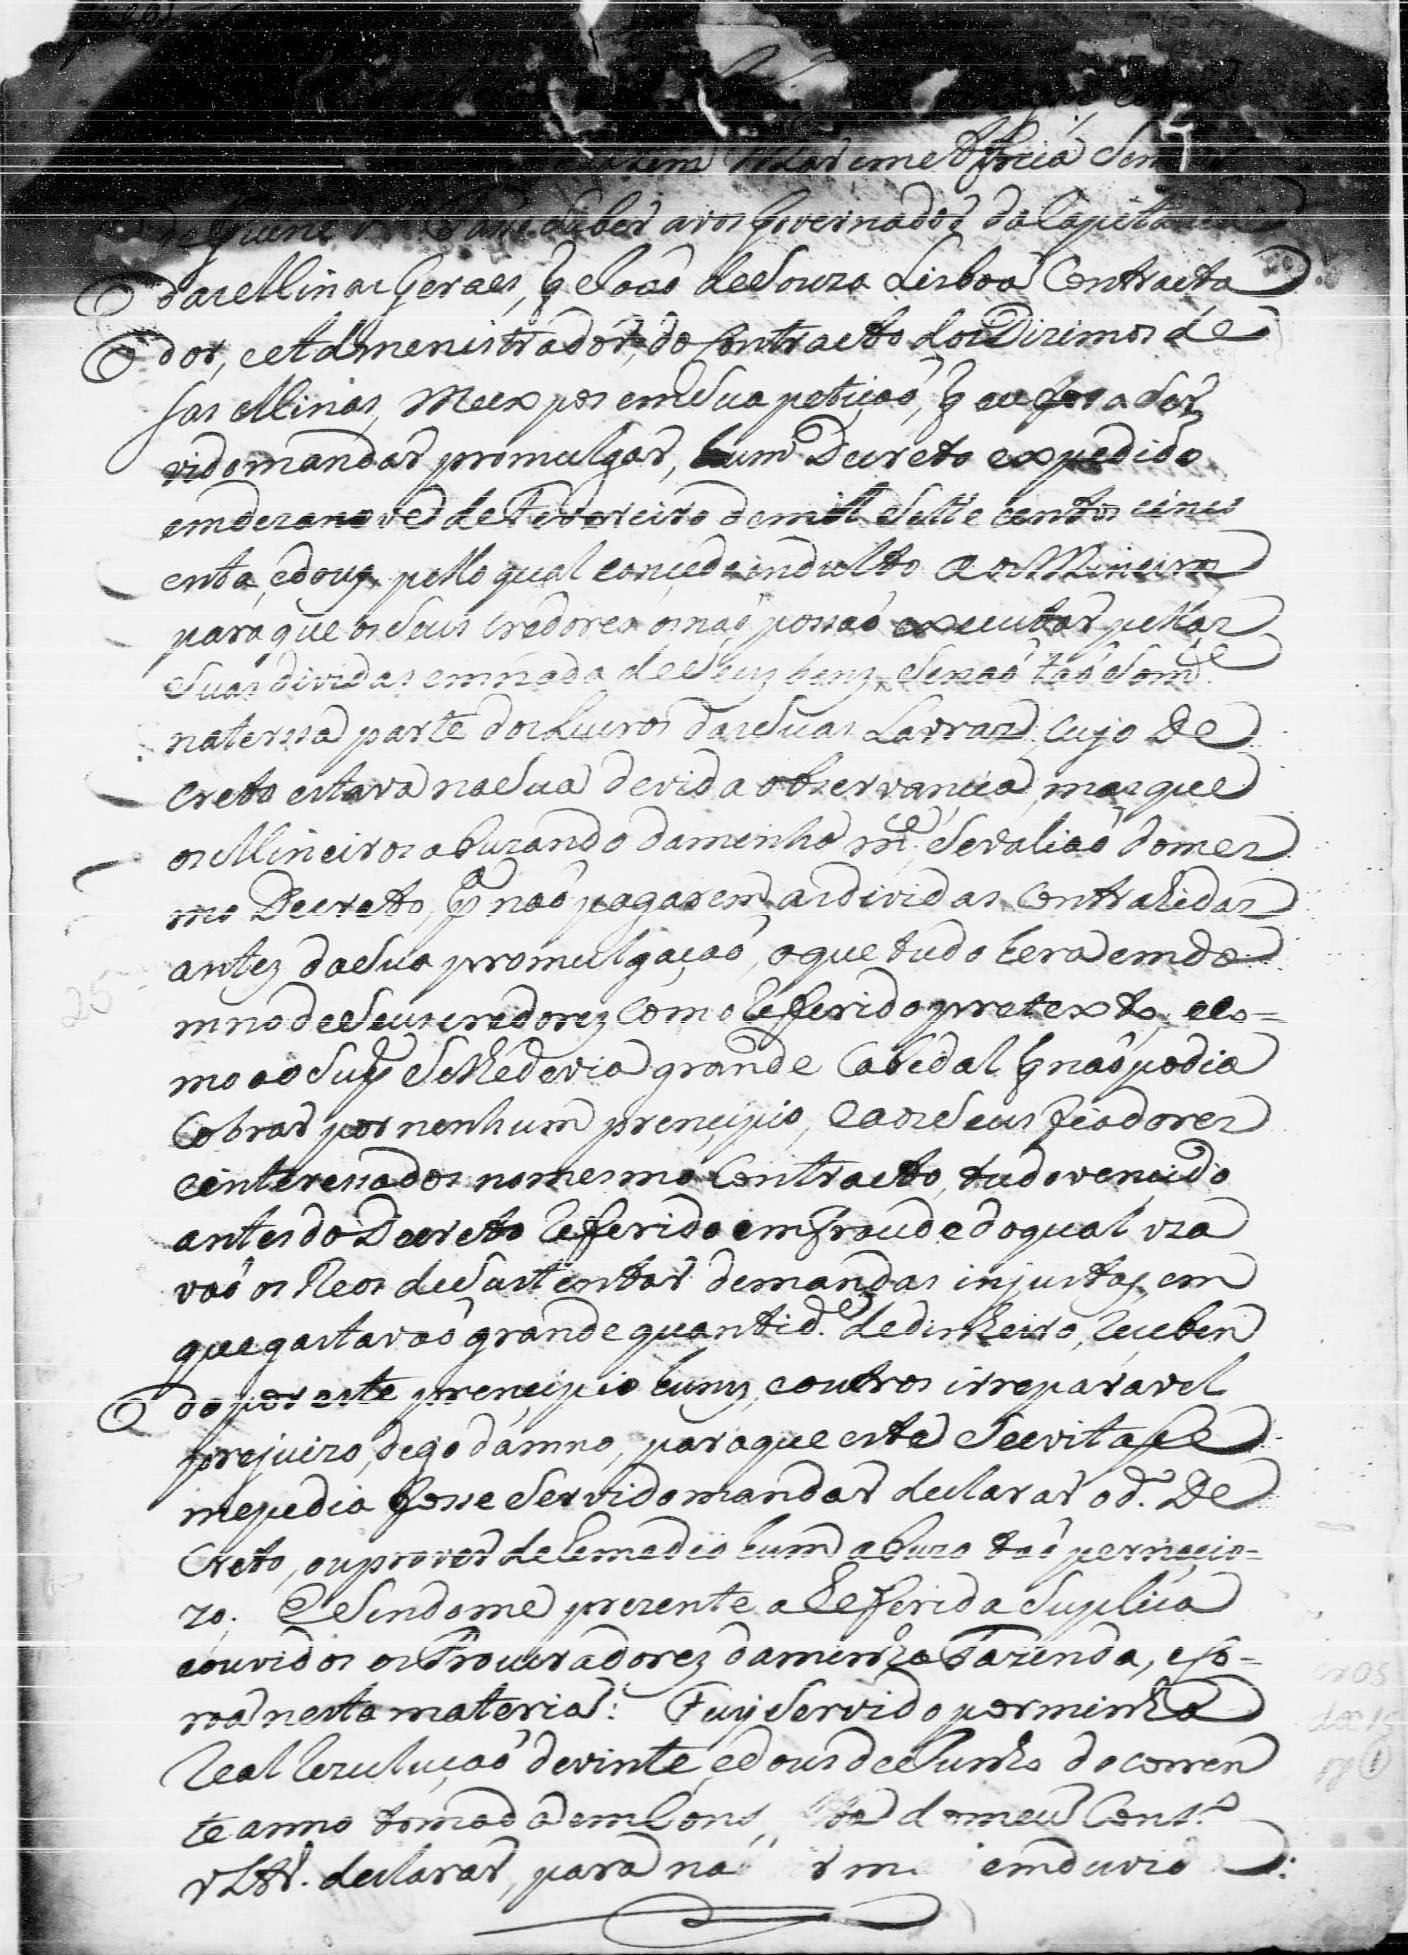 alem Mar em Africa Senhor
de Guiné faço saber a vos Governador da Capitania
das Minas Geraes, q̃ João de Souza Lisboa Contracta
dor, e Administrador, do Contracto dos Dizimos de
sas Minas, Me expos em Sua petiçaõ, q̃ eu fora Ser
vido mandar promulgar, hum Decreto expedido
em dezanove de Fevereiro de mil Sette centos cinco
enta, e douz, pello qual concedo indulto aos Mineiros
para que os Seus credores os naõ possaõ executar pellas
Suas dividas em nada de Seuz benz, Senaõ taõ Som.e
na terssa parte dos Lucros das Suas Lavras: Cujo De
creto estava na Sua devida observancia, mas que
os Mineiros abuzando da minha m.ce, Se valiaõ do mes
mo Decreto, p.a naõ pagarem as dividas Contrahidas
antez da Sua promulgaçaõ, o que tudo hera em da
mno de Seus credorez Com o Refferido pretexto, e co=
mo ao Sup.e Se lhe devia grande Cabedal q̃ naõ podia
Cobrar por nenhum prencipio, e aos Seus fiadores
e interessados no mesmo Contracto, tudo vencido
antes do Decreto Refferido em fraude do qual uza
vaõ os Reos de Sustentar demandas injustas, em
que gastavaõ grande quantid.e de dinheiro, Receben
do por este prencipio hunz, e outros irreparavel
prejuizo, digo damno, para que este Se evitasse
me pedia fosse Servido mandar declarar o d.o De
Creto, ou prover de Remedio hum abuzo taõ pernicio=
zo. E Sendome prezente a Refferida Suplica
e ouvidos os Procuradorez da minha Fazenda, e Co=
roa nesta materia: Fuy Servido por minha
Real Rezuluçaõ de vinte, e dous de Junho do corren
te anno tomada em Cons ta do meu Cons.o
Ultr. declarar, para naõ em duvid